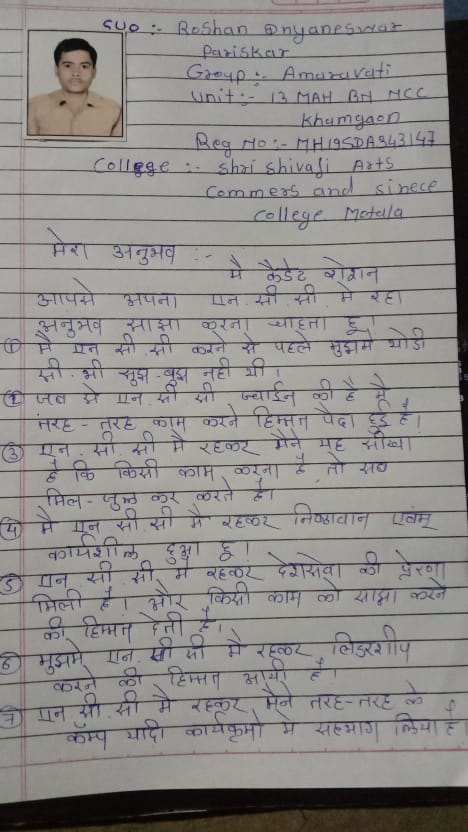 SUO :- Roshan Dnyaneswar
Pariskar
Group :- Amaravati
Unit :- 13 MAH BN NCC
Khamgaon
Reg No :- MH19SDA343147
College :- Shri Shivaji Arts
Commers and sinece
College Motala
मेरा अनुभव :-
मै कैडेट रोशन
आपसे अपना एन. सी. सी. मे रहा
अनुभव साझा करना चाहता हु।
① मै एन सी. सी करने से पहले मुझमे थोडी
सी. भी सुझ-बुझ नही थी।
② जब से एन. सी सी ज्वाईन की है मै
तरह-तरह काम करने हिम्मत पैदा हुई है।
③ एन. सी. सी मै रहकर मैने यह सीखा
है कि किसी काम करना है तो सब
मिल-जुल कर करते है।
④ मै एन सी. सी मै रहकर निष्ठावान एवंम्
कार्यशील हुआ हु।
⑤ एन. सी. सी. मे रहकर देशसेवा की प्रेरणा
मिली है। और किसी काम को साझा करने
की हिम्मत देती है।
⑥ मुझमे एन. सी सी मै रहकर लिडरशीप
करने की हिम्मत आयी है।
⑦ एन. सी. सी मै रहकर मैने तरह-तरह के
कॅम्प यादी कार्यक्रमो मे सहभाग लिया है।